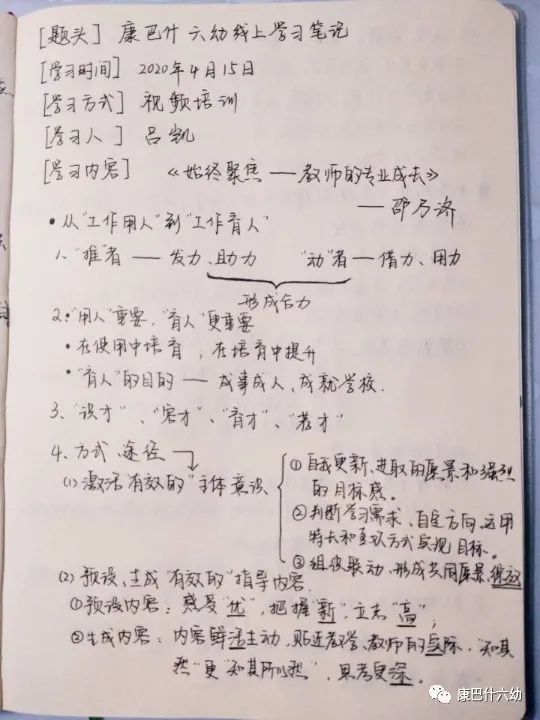 [题头] 康巴什六幼线上学习笔记
[学习时间] 2020年4月15日
[学习方式] 视频培训
[学习人] 吕凯
[学习内容] 《始终聚焦—教师的专业成长》
——邵乃济
• 从“工作用人”到“工作育人”
1、“推”者——发力、助力 “动”者——借力、用力
形成合力
2、“用人”重要,“育人”更重要
• 在使用中培育,在培育中提升
• “育人”的目的——成事成人、成就学校.
3、“识才”、“容才”、“育才”、“荐才”
4、方式、途径
(1) 激活有效的“主体意识
① 自我更新、进取的愿景和强烈
的目标感。
② 判断学习需求、自定方向、运用
特长和喜欢方式实现目标。
③ 组彼联动、形成共同愿景
(2) 预设、生成“有效的”指导内容
① 预设内容:感受“优”,把握“新”,立志“高”;
② 生成内容:内容鲜活生动、贴近教学、教师的实际,“知其
然”更“知其所以然”,思考更深。
康巴什六幼